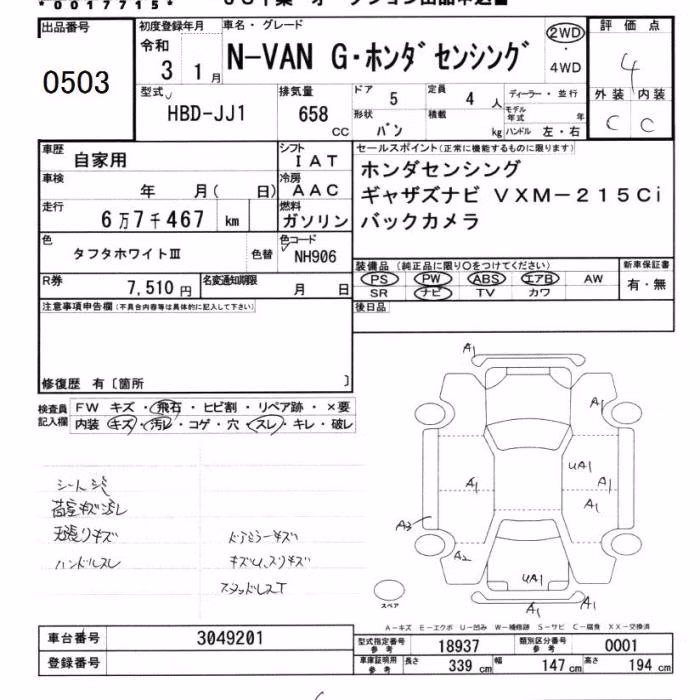 *0017715*
出品番号
0503
初度登録年月
令和
3 1月
車名・グレード
N-VAN G・ホンダセンシング
2WD
・
4WD
評価点
4
外装 内装
C C
型式
HBD-JJ1
排気量
658 CC
ドア 5
定員 4 人
形状 バン
積載 kg
ディーラー・並行
モデル年式 年
ハンドル 左・右
車歴 自家用
シフト IAT
車検 年 月( 日)
冷房 AAC
走行 6万7千467 km
燃料 ガソリン
色 タフタホワイトⅢ 色替
色コード NH906
R券 7,510円
名変通知期限 月 日
セールスポイント(正常に機能するものに限ります)
ホンダセンシング
ギャザズナビ VXM-215Ci
バックカメラ
装備品(純正品に限り○をつけてください)
PS PW ABS エアB AW
SR ナビ TV カワ
新車保証書
有・無
後日品
注意事項申告欄(不具合内容等は具体的に記入して下さい)
修復歴 有〔箇所 〕
検査員記入欄
FW キズ・飛石・ヒビ割・リペア跡・×要
内装 キズ・汚レ・コゲ・穴・スレ・キレ・破レ
シート汚
荷室キズ汚レ
天張りキズ
ハンドルスレ
ドアミラーキズ
キズU,スリキズ
スタッドレスT
A1
A1
UA1
A1
A1
A1
A3
A2
UA1
A1
A1
スペア
A-キズ E-エクボ U-凹み W-補修跡 S-サビ C-腐食 XX-交換済
車台番号 3049201
登録番号
型式指定番号 参考 18937
類別区分番号 参考 0001
車庫証明用 参考 長さ 339 cm 幅 147 cm 高さ 194 cm